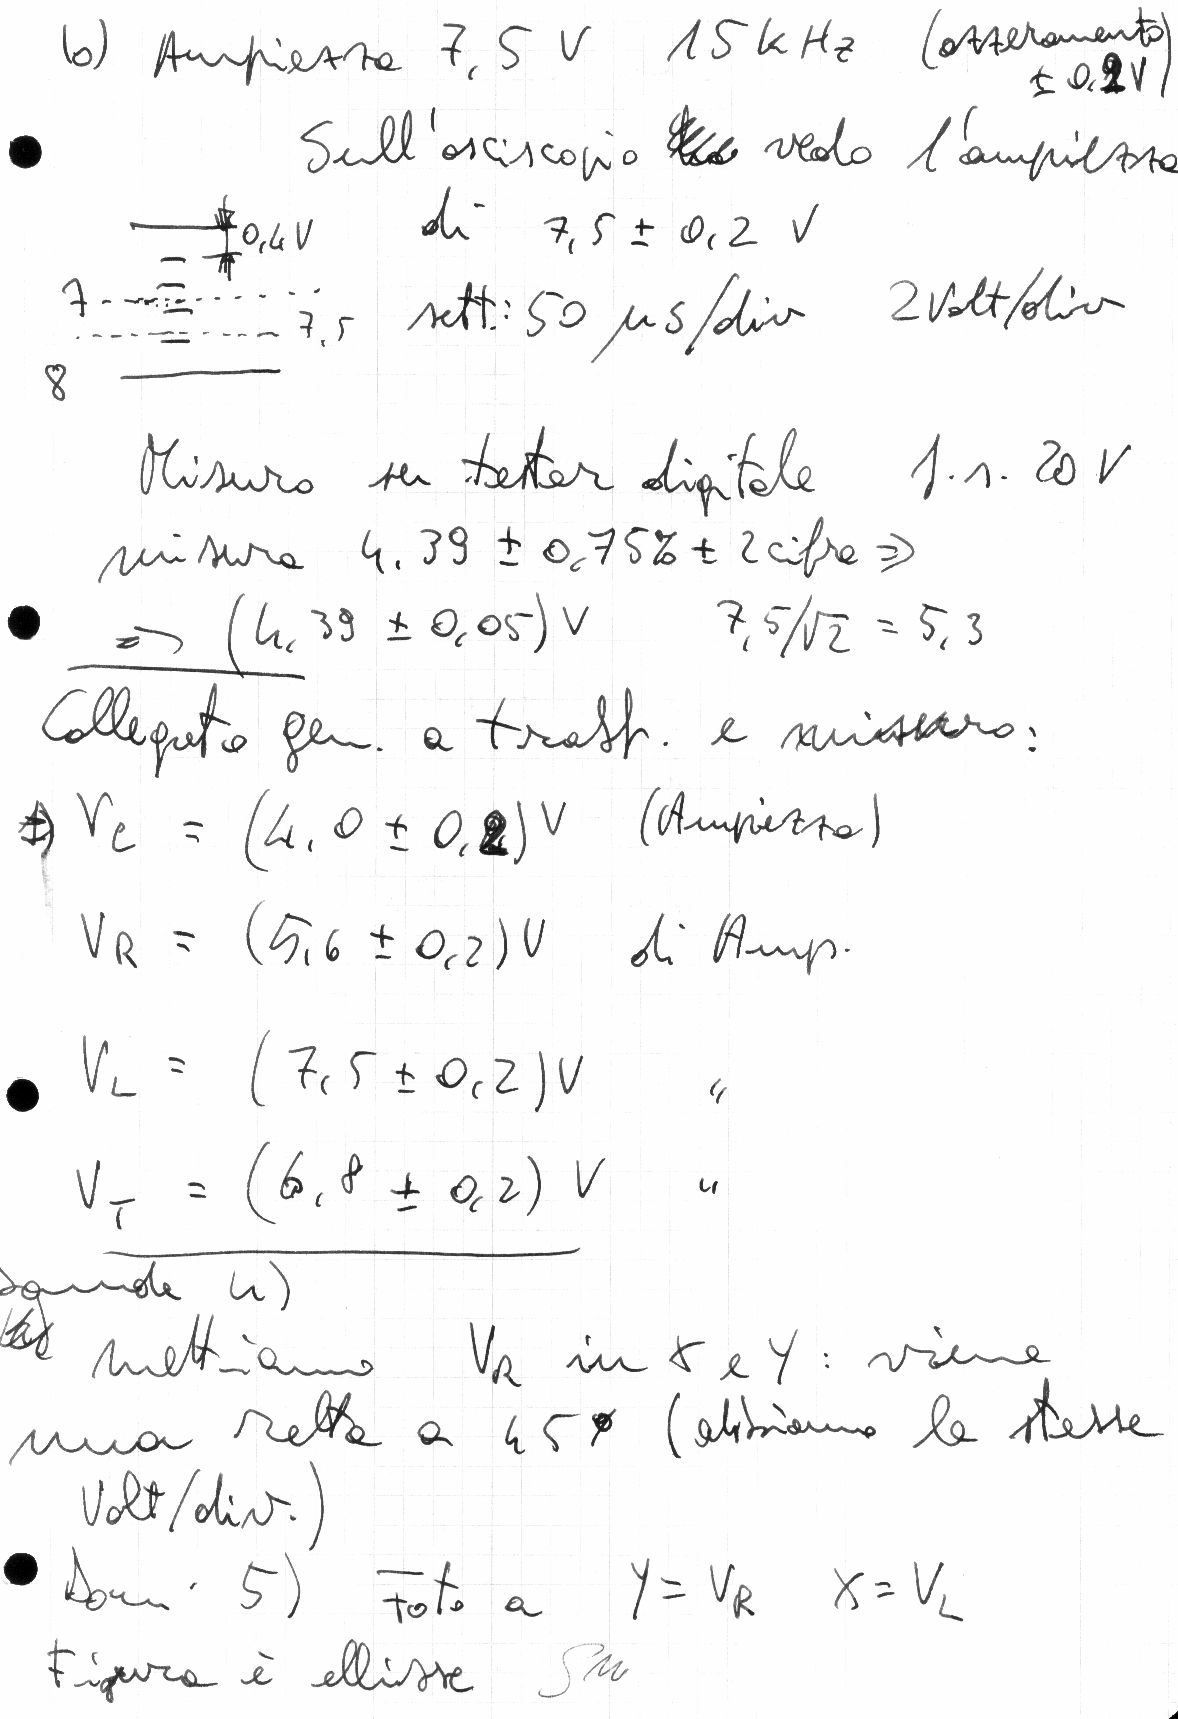 b) Ampiezza 7,5 V 15 kHz (azzeramento ± 0,2V)
Sull'osciscopio vedo l'ampiezza
di 7,5 ± 0,2 V
0,4V
7
7,5
8
sett: 50 μs/div 2Volt/div
Misura su tester digitale f.s. 20 V
misura 4,39 ± 0,75% ± 2 cifre ⇒
⇒ (4,39 ± 0,05) V 7,5/√2 = 5,3
Collegato gen. a trasf. e misuro:
V_C = (4,0 ± 0,2) V (Ampiezza)
V_R = (5,6 ± 0,2) V di Amp.
V_L = (7,5 ± 0,2) V "
V_T = (6,8 ± 0,2) V "
Domande 4)
mettiamo V_R in X e Y: viene
una retta a 45° (abbiamo le stesse
Volt/div.)
Dom. 5) Foto a Y = V_R X = V_L
Figura è ellisse